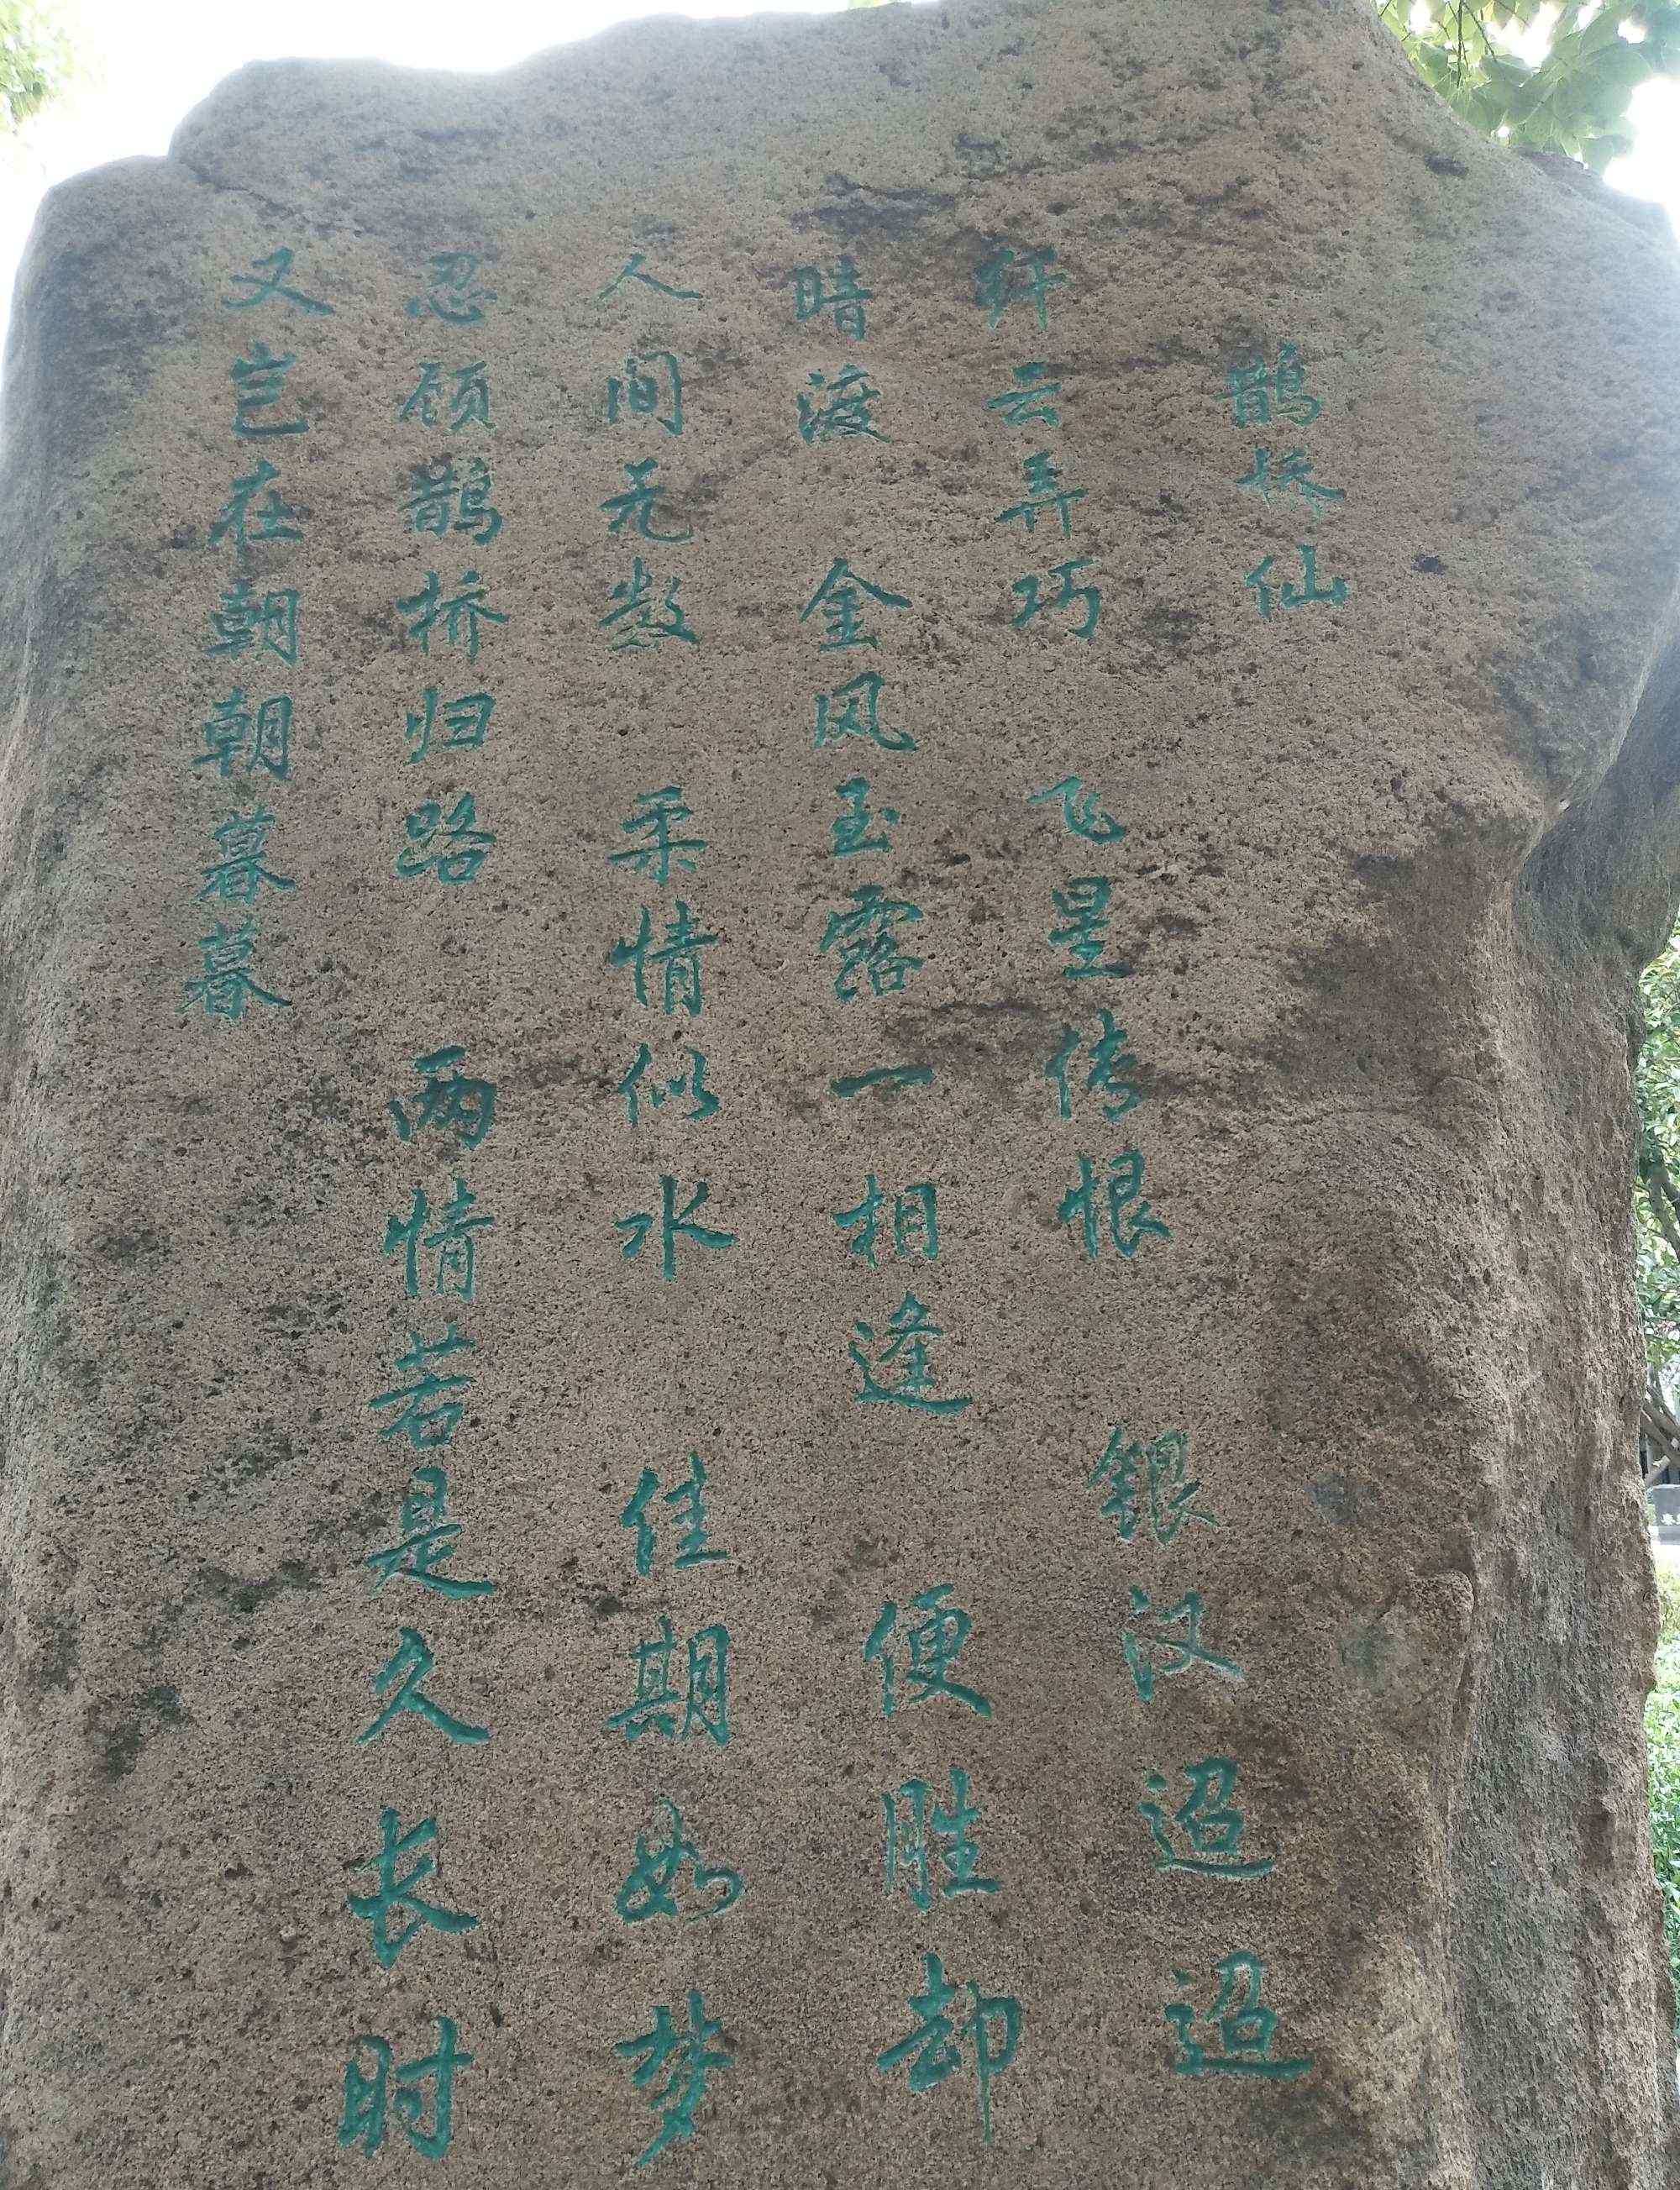 鹊桥仙
纤云弄巧 飞星传恨 銀汉迢迢
暗渡 金风玉露一相逢 便胜却
人间无数 柔情似水 佳期如梦
忍顾鹊桥归路 两情若是久长时
又岂在朝朝暮暮